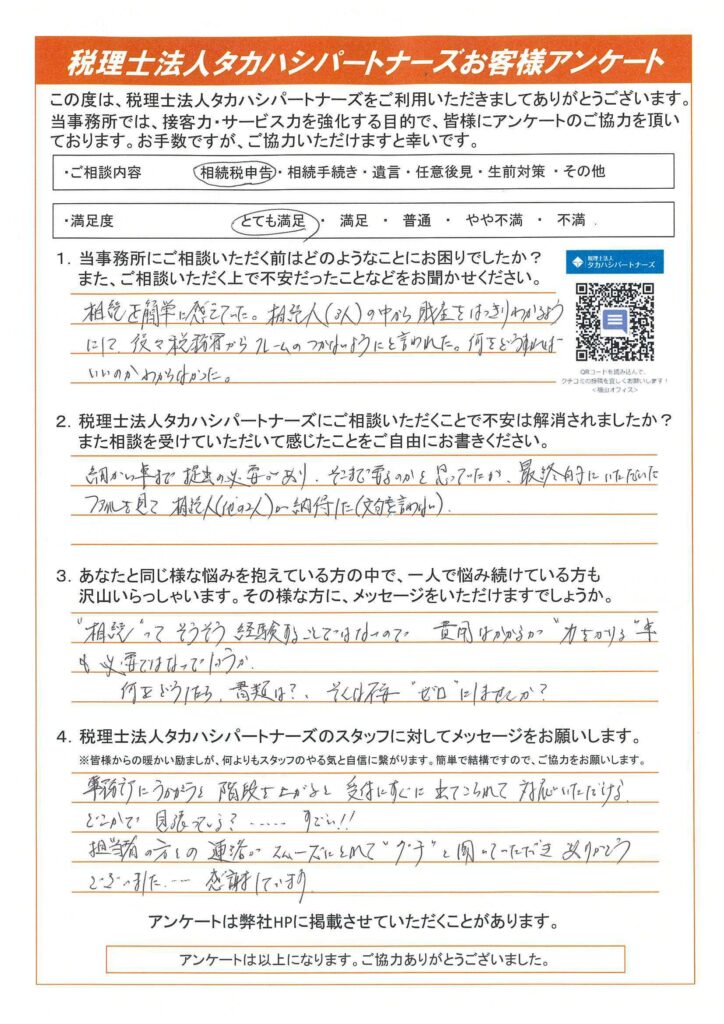 税理士法人タカハシパートナーズお客様アンケート
この度は、税理士法人タカハシパートナーズをご利用いただきましてありがとうございます。
当事務所では、接客力・サービス力を強化する目的で、皆様にアンケートのご協力を頂いております。お手数ですが、ご協力いただけますと幸いです。
・ご相談内容 相続税申告・相続手続き・遺言・任意後見・生前対策・その他
・満足度 とても満足 ・ 満足 ・ 普通 ・ やや不満 ・ 不満
1. 当事務所にご相談いただく前はどのようなことにお困りでしたか?
また、ご相談いただく上で不安だったことなどをお聞かせください。
税理士法人
タカハシパートナーズ
相続を簡単に考えていた。相続人(3人)の中から財産をはっきりわかるよう
にして、後々税務署からクレームのつかないようにと言われた。何をどうすれば
いいのかわからなかった。
QRコードを読み込んで、
クチコミの投稿を宜しくお願いします!
<福山オフィス>
2. 税理士法人タカハシパートナーズにご相談いただくことで不安は解消されましたか?
また相談を受けていただいて感じたことをご自由にお書きください。
細かい事まで提出の必要があり、そこまで要るのかと思っていたが、最終的にいただいた
ファイルを見て相続人(他の2人)が納得した(文句言わない)。
3. あなたと同じ様な悩みを抱えている方の中で、一人で悩み続けている方も
沢山いらっしゃいます。その様な方に、メッセージをいただけますでしょうか。
"相続"って そうそう 経験することではないので 費用はかかるが "力をかりる"事
も必要ではないでしょうか。
何をどうしたら、書類は?、そんな不安"ゼロ"にしませんか?
4. 税理士法人タカハシパートナーズのスタッフに対してメッセージをお願いします。
※皆様からの暖かい励ましが、何よりもスタッフのやる気と自信に繋がります。簡単で結構ですので、ご協力をお願いします。
事務所にうかがうと 階段を上がると 受付にすぐに出てこられて 対応いただける。
どこかで 見張っている? ‥‥‥ すごい!!
担当者の方との 連絡が スムーズにとれて と聞いていただき ありがとう
ございました ‥‥ 感謝しています。
アンケートは弊社HPに掲載させていただくことがあります。
アンケートは以上になります。ご協力ありがとうございました。